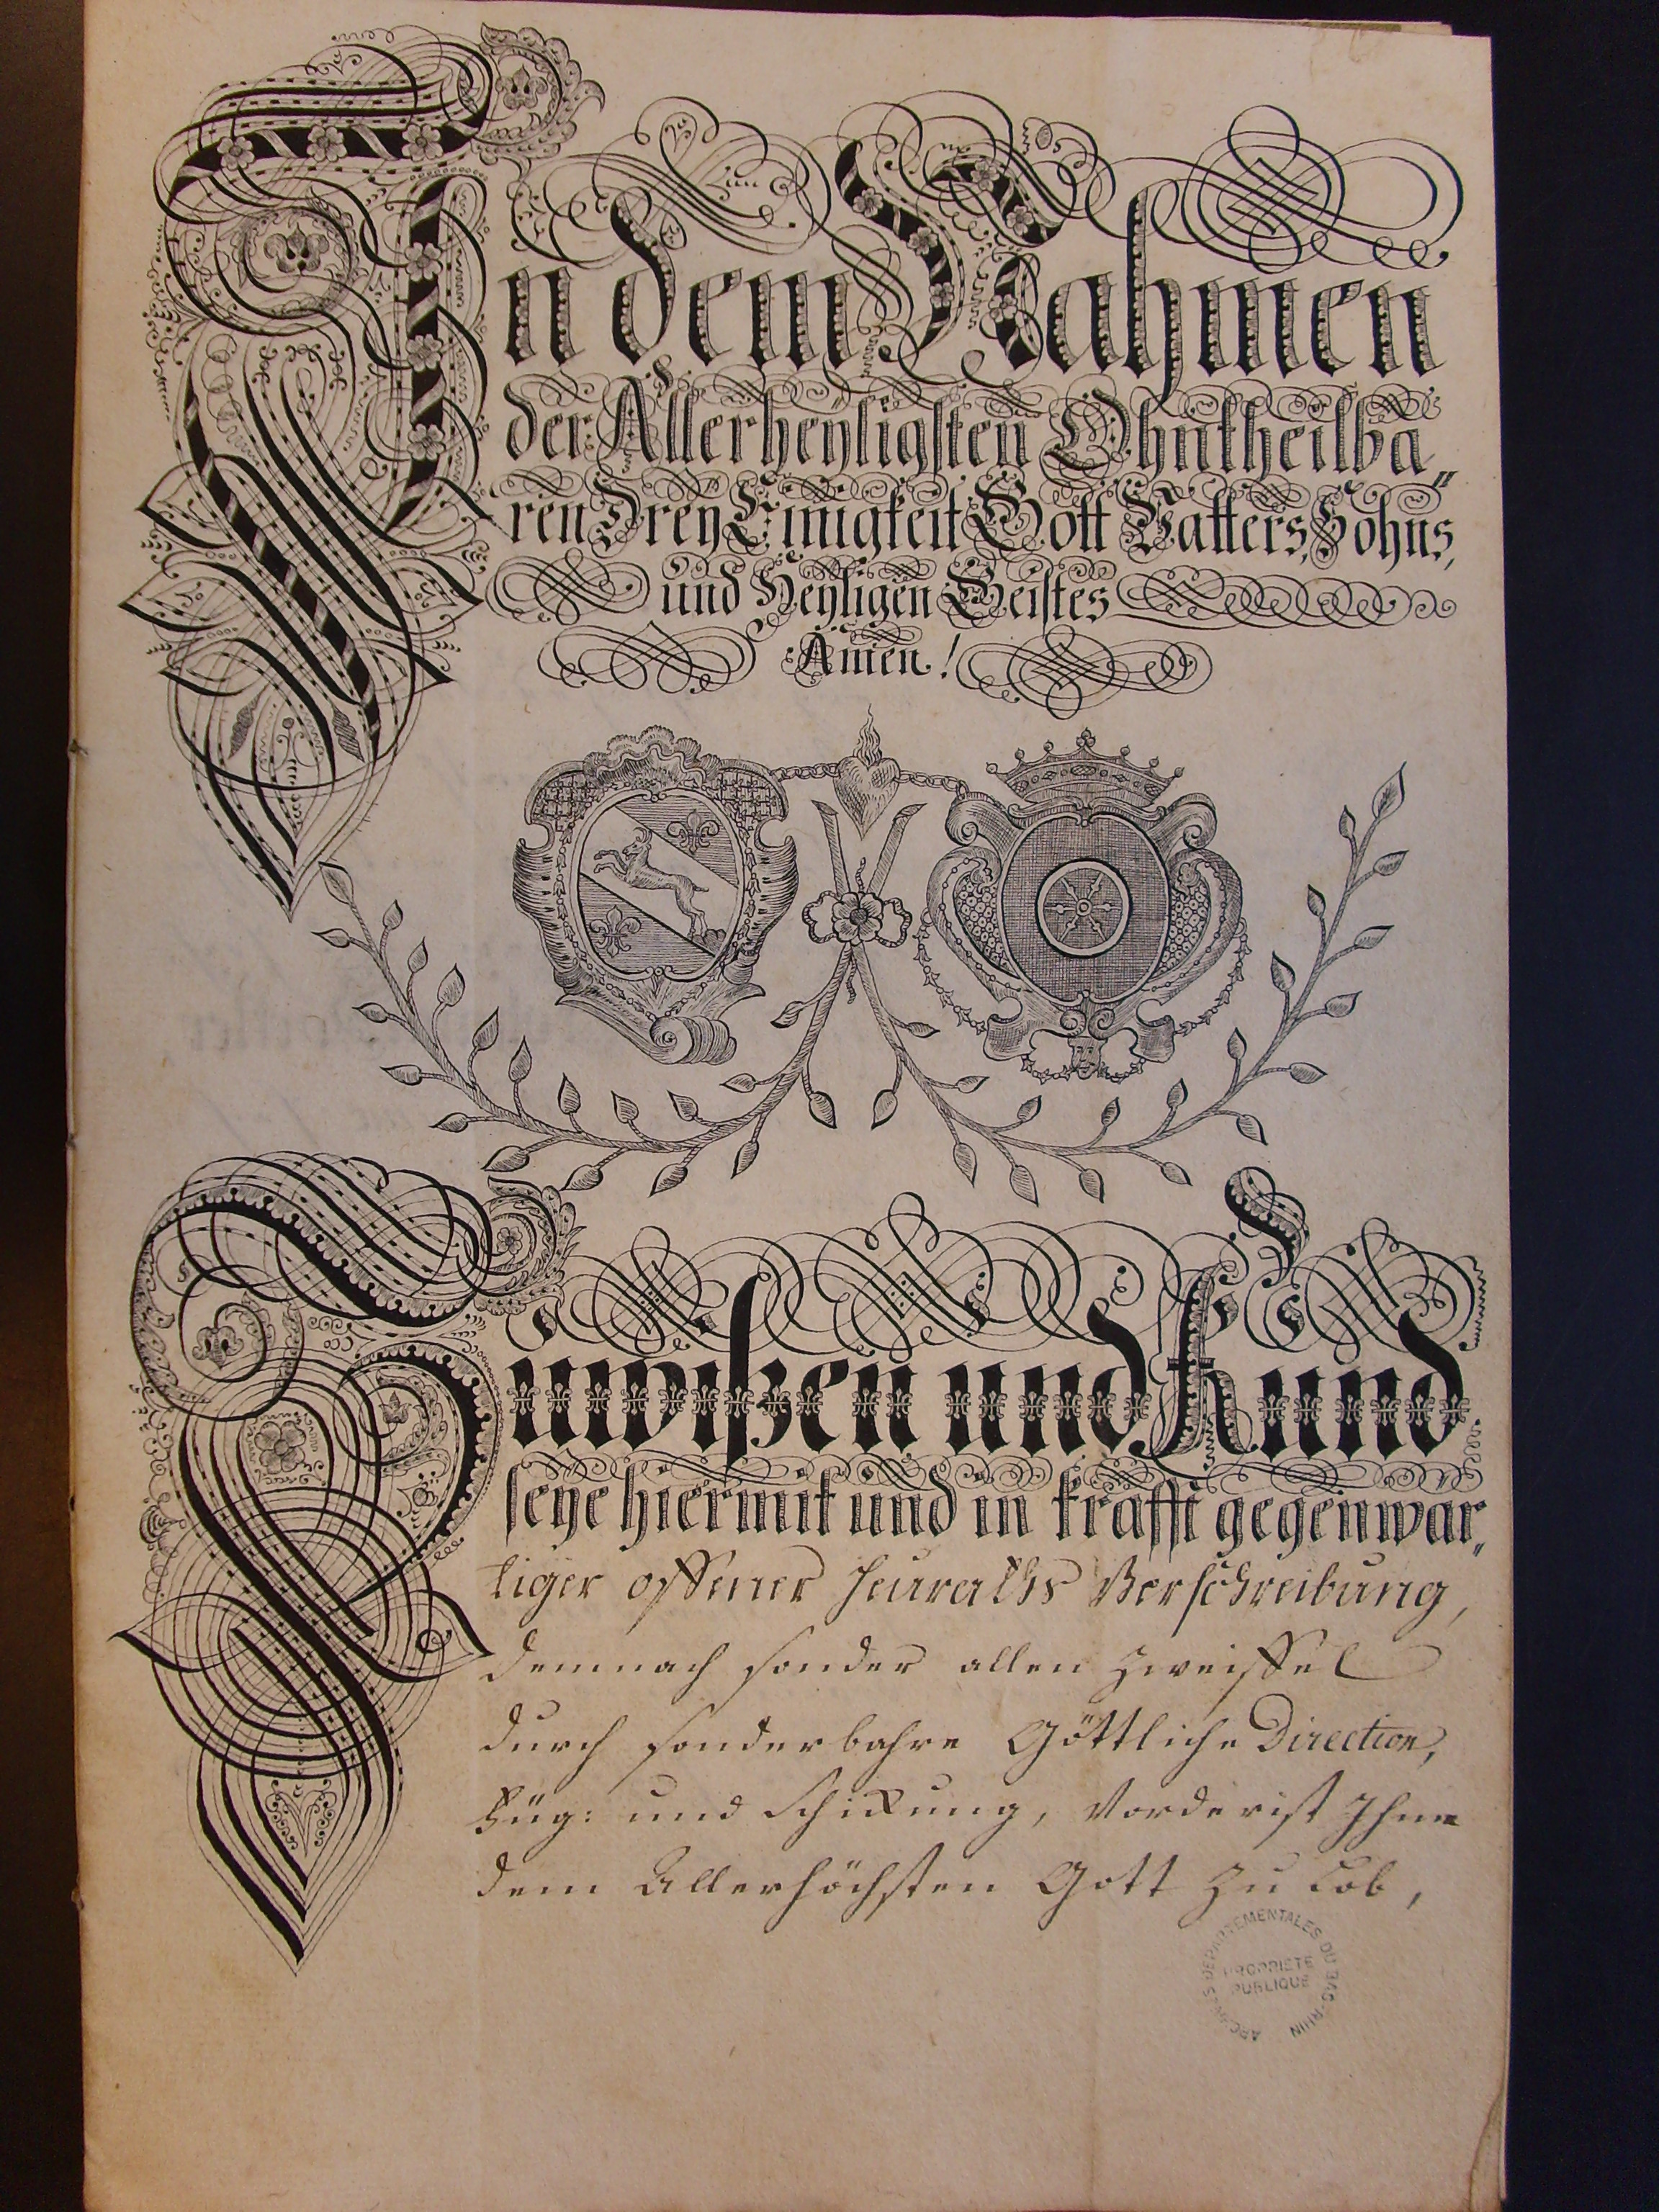 In dem Nahmen
der Allerheyligsten Ohntheilba„
ren Drey Einigkeit Gott Vatters, Sohns,
und Heyligen Geistes
Amen!
Zuwißen und Kund
seye hiermit und in krafft gegenwär„
tiger offener Heuraths Verschreibung,
demnach sonder allen Zweiffel
durch sonderbahre Göttliche Direction,
Füg: und Schickung, Vorderist Ihme
dem Allerhöchsten Gott zu Lob,
ARCHIVES DEPARTEMENTALES DU BAS-RHIN
PROPRIETE
PUBLIQUE